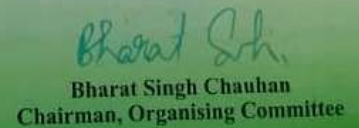 Bharat
Bharat Singh Chauhan
Chairman, Organising Committee